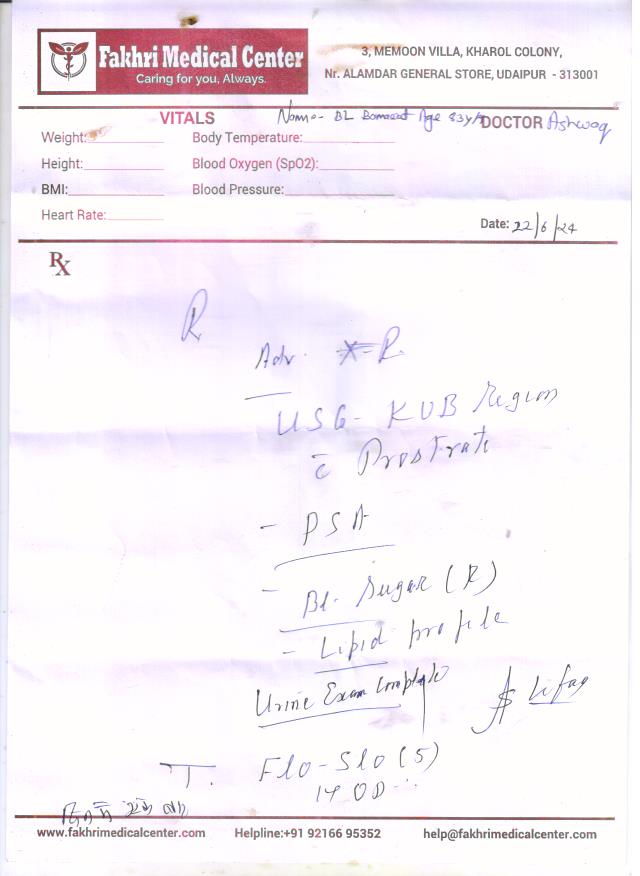 Fakhri Medical Center
Caring for you, Always.
3, MEMOON VILLA, KHAROL COLONY,
Nr. ALAMDAR GENERAL STORE, UDAIPUR - 313001
VITALS Name- BL Age 83 DOCTOR Ashwaq
Weight: Body Temperature:
Height: Blood Oxygen (SpO2):
BMI: Blood Pressure:
Heart Rate:
Date: 22/6/24
Rx
R
Adv.
USG- KUB Region
c̄ Prostrate
- PSA
- Bl. Sugar (R)
- Lipid profile
Urine Exam Complete
T. Flo-Slo (5)
14 OD
www.fakhrimedicalcenter.com Helpline:+91 92166 95352 help@fakhrimedicalcenter.com